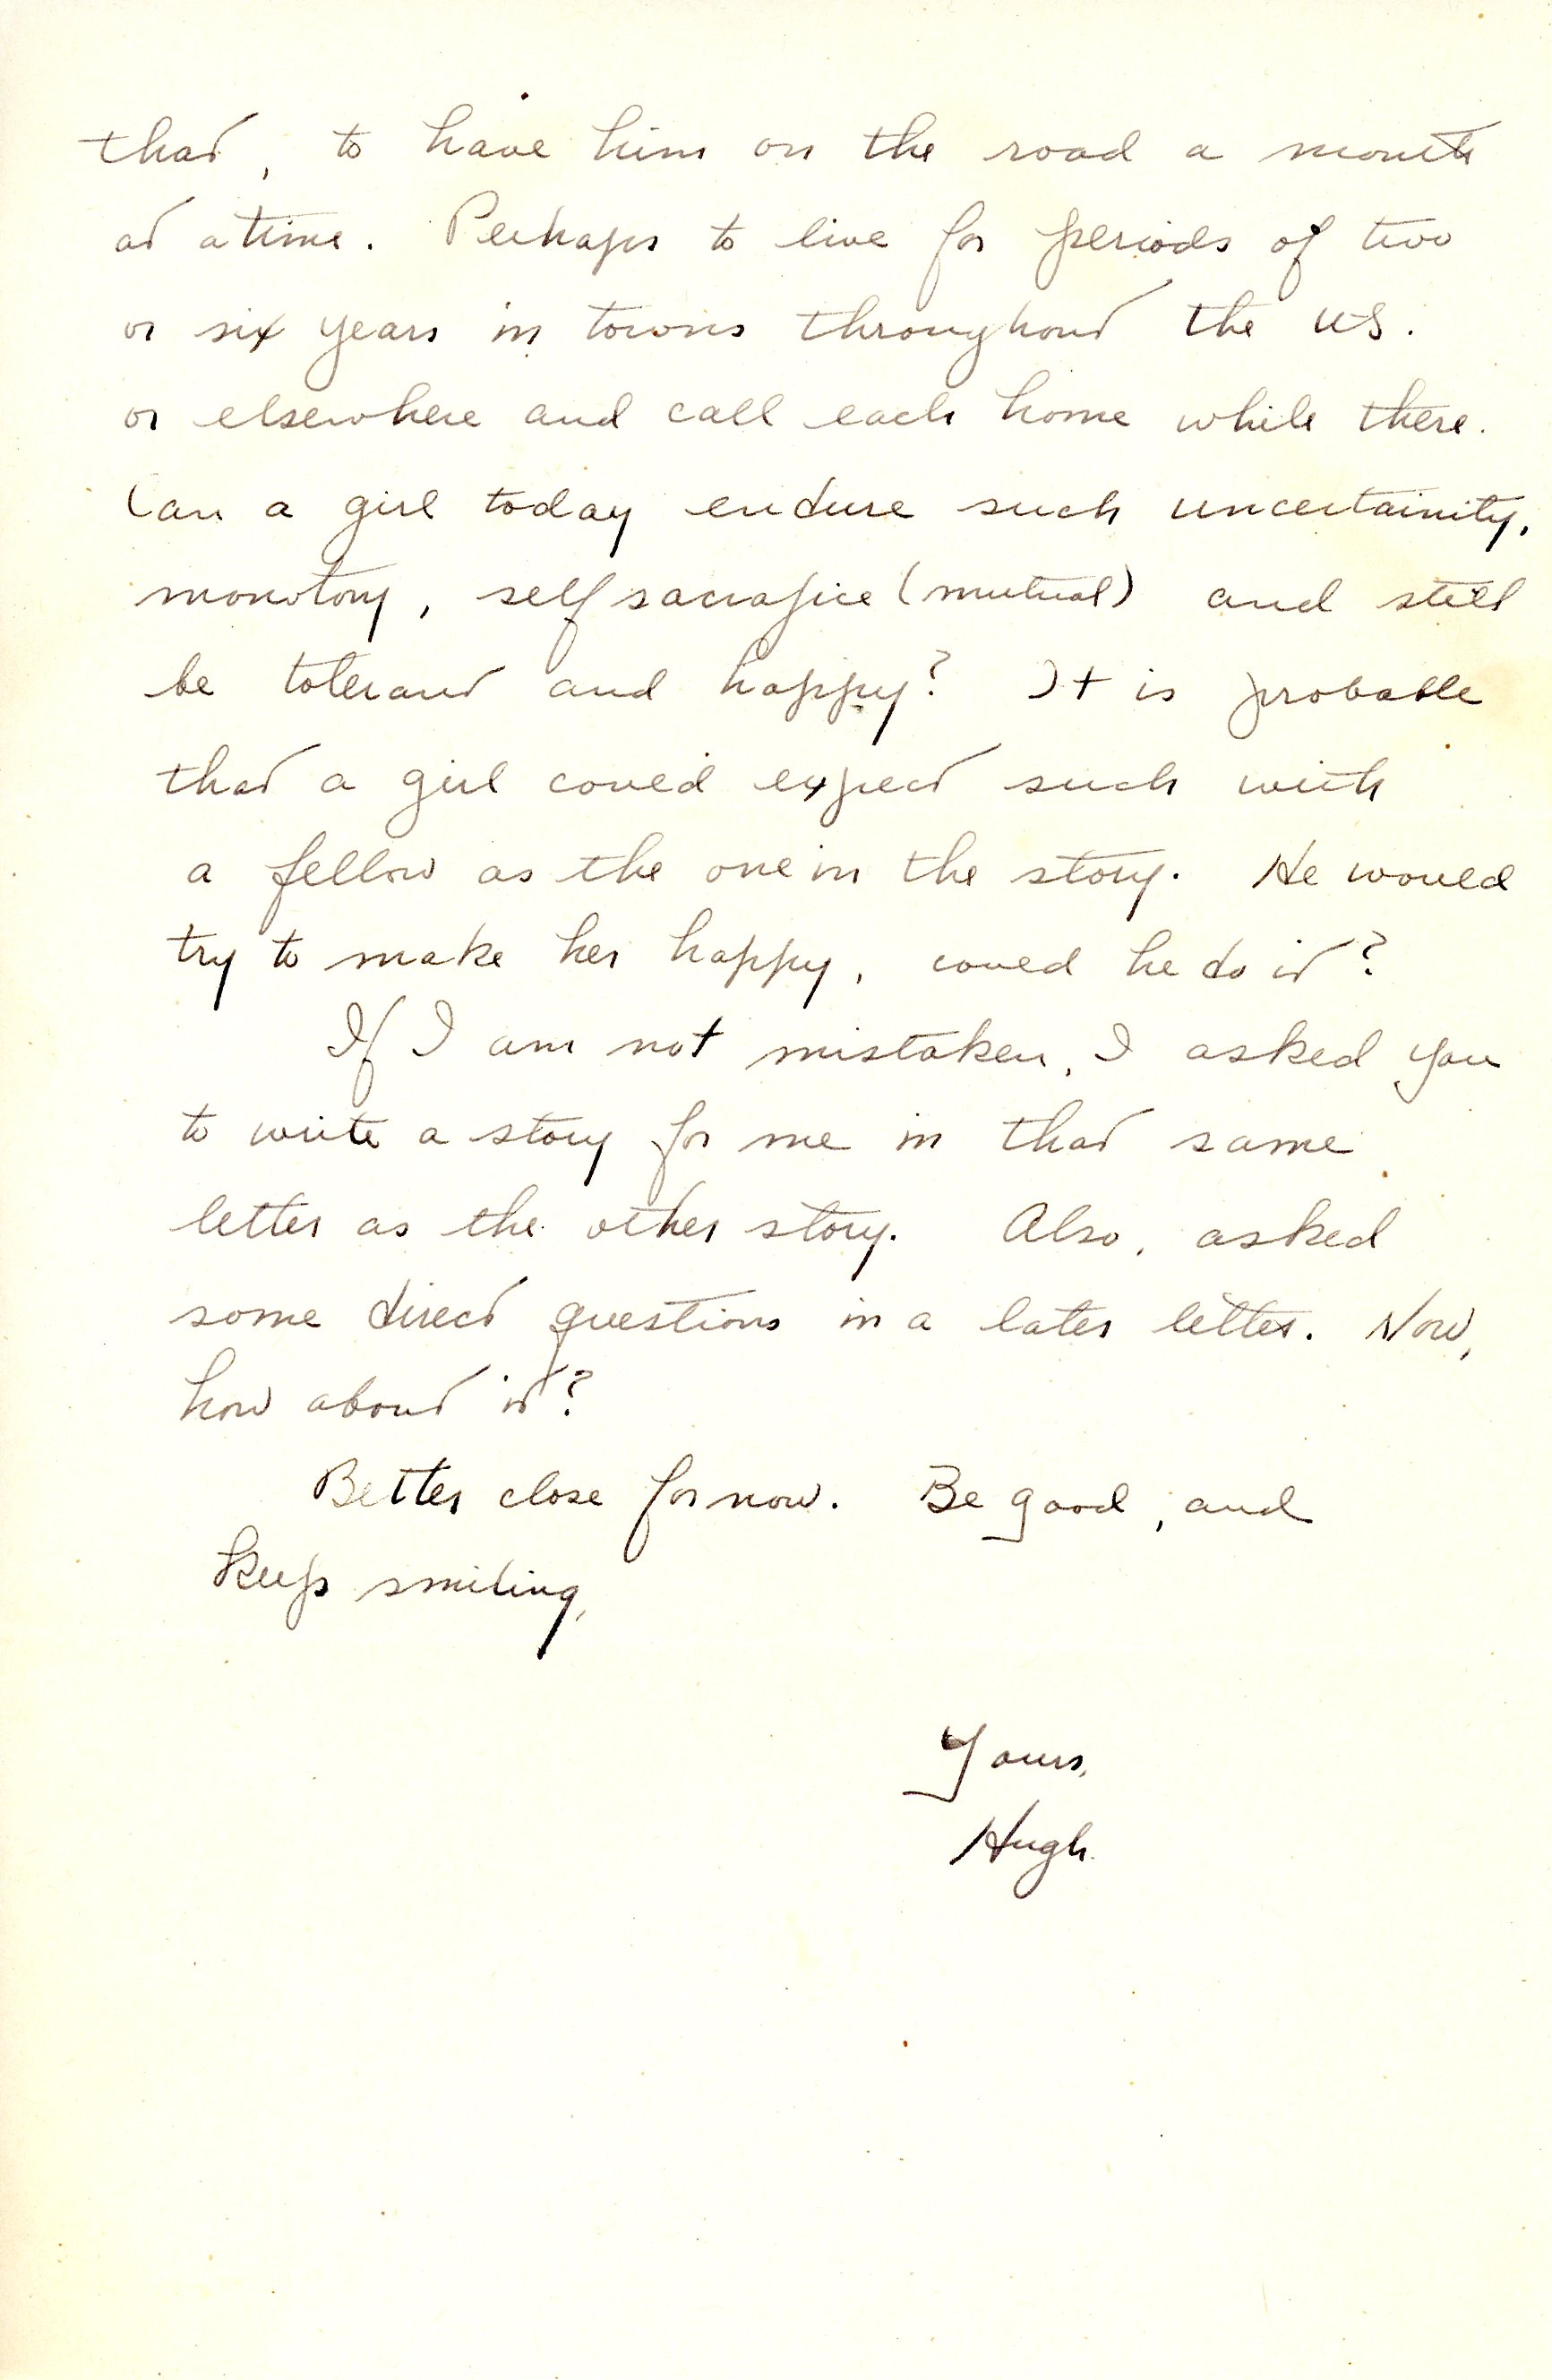 that, to have him on the road a month
at a time. Perhaps to live for periods of two
or six years in towns throughout the US.
or elsewhere and call each home while there.
Can a girl today endure such uncertainity,
monotony, self sacrafice (mutual) and still
be tolerant and happy? It is probable
that a girl could expect such with
a fellow as the one in the story. He would
try to make her happy, could he do it?
If I am not mistaken, I asked you
to write a story for me in that same
letter as the other story. Also, asked
some direct questions in a later letter. Now,
how about it?
Better close for now. Be good, and
keep smiling,
Yours,
Hugh.